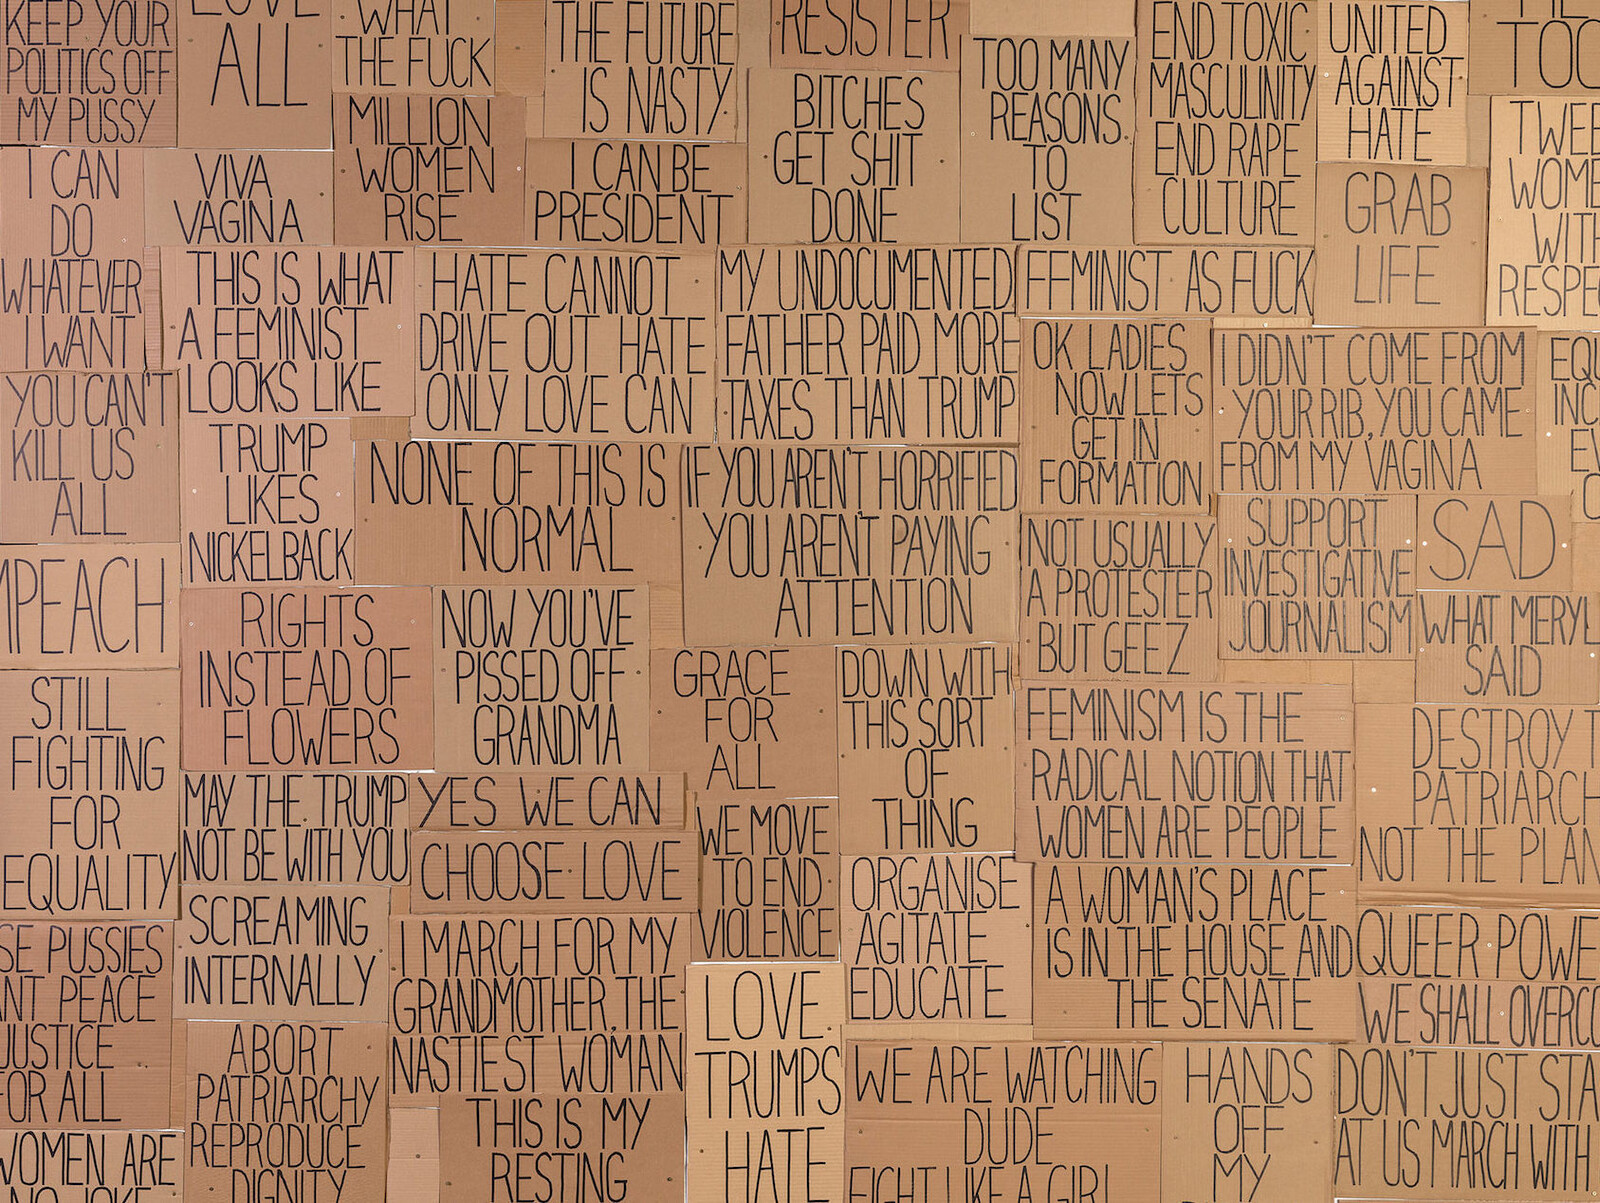 KEEP YOUR
POLITICS OFF
MY PUSSY
LOVE
ALL
WHAT
THE FUCK
THE FUTURE
IS NASTY
RESISTER
TOO MANY
REASONS
TO
LIST
END TOXIC
MASCULINITY
END RAPE
CULTURE
UNITED
AGAINST
HATE
TOO
MILLION
WOMEN
RISE
BITCHES
GET SHIT
DONE
TWEE
WOME
WITH
RESPE
I CAN
DO
WHATEVER
I WANT
VIVA
VAGINA
I CAN BE
PRESIDENT
GRAB
LIFE
THIS IS WHAT
A FEMINIST
LOOKS LIKE
HATE CANNOT
DRIVE OUT HATE
ONLY LOVE CAN
MY UNDOCUMENTED
FATHER PAID MORE
TAXES THAN TRUMP
FEMINIST AS FUCK
OK LADIES
NOW LETS
GET IN
FORMATION
I DIDN'T COME FROM
YOUR RIB, YOU CAME
FROM MY VAGINA
EQU
INC
EV
YOU CAN'T
KILL US
ALL
TRUMP
LIKES
NICKELBACK
NONE OF THIS IS
NORMAL
IF YOU AREN'T HORRIFIED
YOU AREN'T PAYING
ATTENTION
NOT USUALLY
A PROTESTER
BUT GEEZ
SUPPORT
INVESTIGATIVE
JOURNALISM
SAD
MPEACH
RIGHTS
INSTEAD OF
FLOWERS
NOW YOU'VE
PISSED OFF
GRANDMA
GRACE
FOR
ALL
DOWN WITH
THIS SORT
OF
THING
WHAT MERYL
SAID
STILL
FIGHTING
FOR
EQUALITY
FEMINISM IS THE
RADICAL NOTION THAT
WOMEN ARE PEOPLE
DESTROY T
PATRIARCH
NOT THE PLAN
MAY THE TRUMP
NOT BE WITH YOU
YES WE CAN
CHOOSE LOVE
WE MOVE
TO END
VIOLENCE
ORGANISE
AGITATE
EDUCATE
A WOMAN'S PLACE
IS IN THE HOUSE AND
THE SENATE
QUEER POWE
WE SHALL OVERCO
SE PUSSIES
ANT PEACE
JUSTICE
FOR ALL
SCREAMING
INTERNALLY
I MARCH FOR MY
GRANDMOTHER, THE
NASTIEST WOMAN
LOVE
TRUMPS
HATE
ABORT
PATRIARCHY
REPRODUCE
DIGNITY
THIS IS MY
RESTING
WE ARE WATCHING
DUDE
FIGHT LIKE A GIRL
HANDS
OFF
MY
DON'T JUST STA
AT US MARCH WITH
WOMEN ARE
NO JOKE